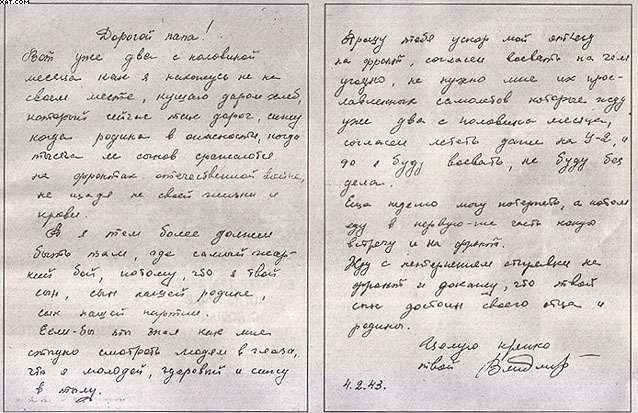 XAT.COM
Дорогой папа!
Вот уже два с половиной
месяца как я нахожусь не на
своем месте, кушаю даром хлеб,
который сейчас так дорог, сижу
когда родина в опасности, когда
тысяча ее сынов сражаются
на фронтах отечественной войны,
не щадя не своей жизни и
крови.
А я тем более должен
быть там, где самый жар-
кий бой, потому, что я твой
сын, сын нашей родине,
сын нашей партии.
Если-бы ты знал как мне
стыдно смотреть людям в глаза,
что я молодой, здоровый и сижу
в тылу.
Прошу тебя ускор мой отъезд
на фронт, согласен воевать на чем
угодно, не нужно мне их прос-
лавленных самолетов которые жду
уже два с половина месяца,
согласен летать даже на У-2, и
то я буду воевать, не буду без
дела.
Еще неделю могу потерпеть, а потом
еду в первую-же часть какую
встречу и на фронт.
Жду с нетерпением отправки на
фронт и докажу, что твой
сын достоин своего отца и
родины.
Целую крепко
твой Владимир
4.2.43.